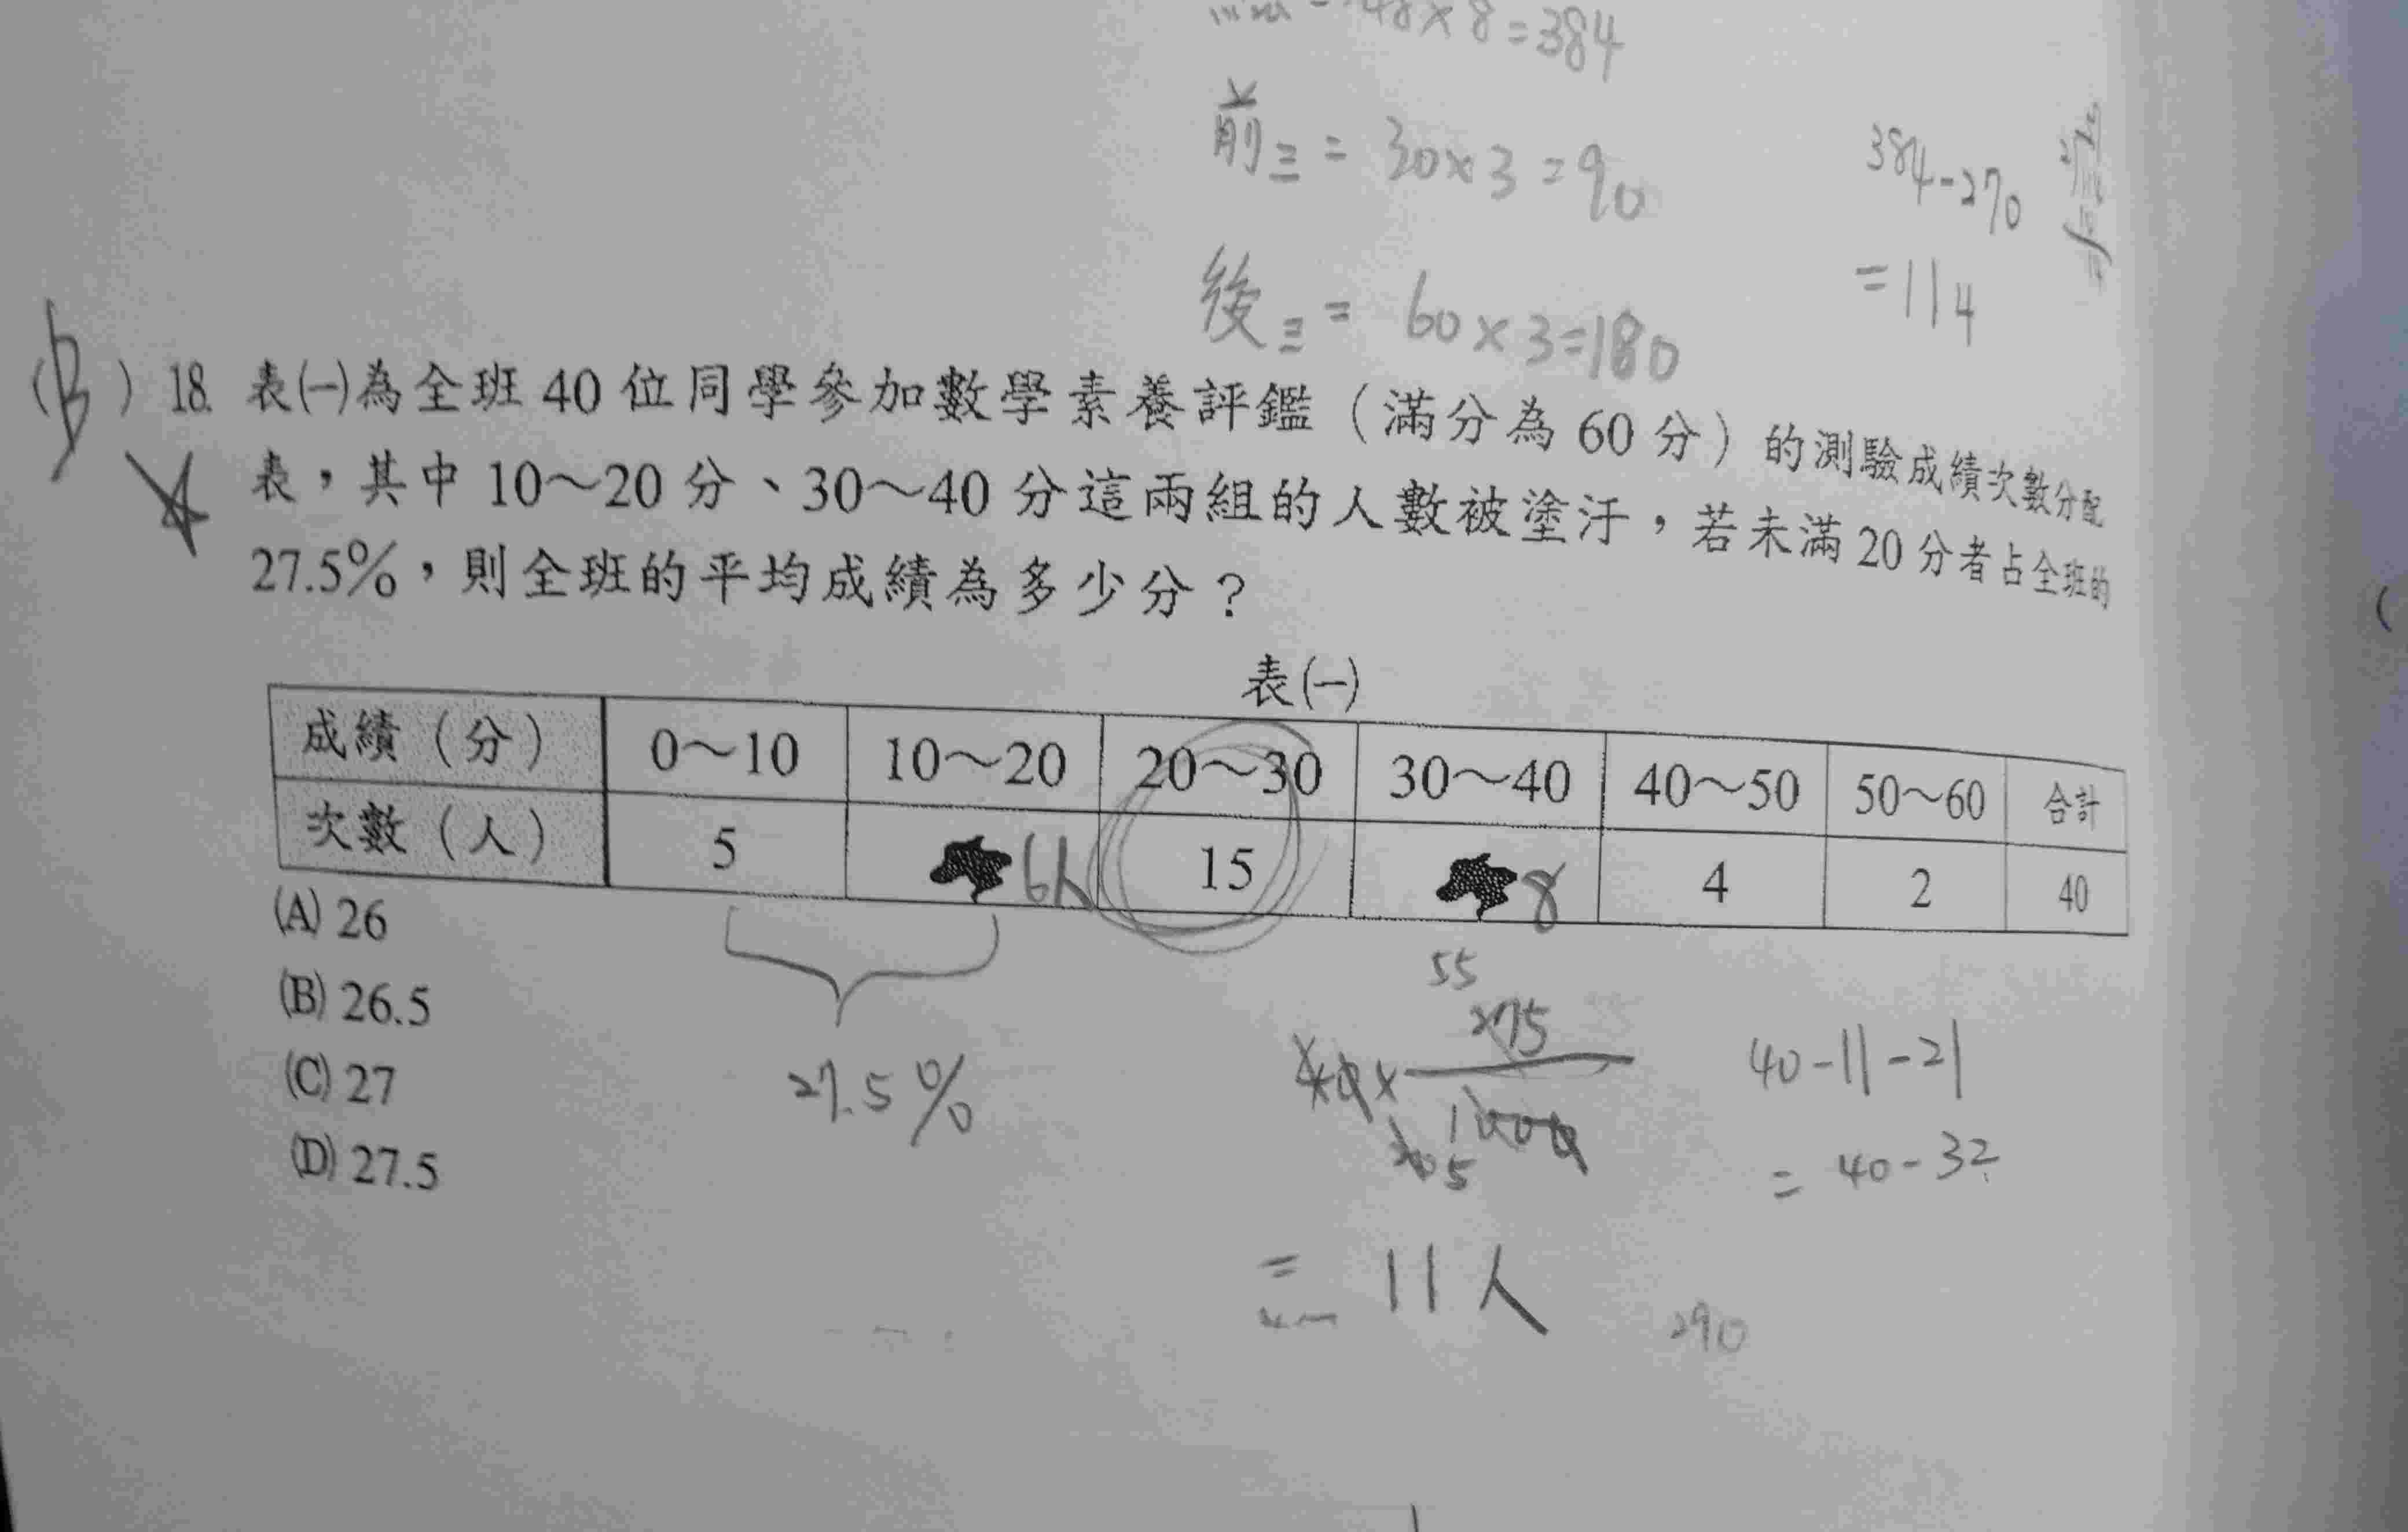 48×8=384
前三 = 30×3=90
384-270
=114
後三 = 60×3=180
(B) 18. 表㈠為全班 40 位同學參加數學素養評鑑（滿分為 60 分）的測驗成績次數分配
表，其中 10～20 分、30～40 分這兩組的人數被塗汙，若未滿 20 分者占全班的
27.5%，則全班的平均成績為多少分？
表㈠
成績（分） 0～10 10～20 20～30 30～40 40～50 50～60 合計
次數（人） 5 6人 15 8 4 2 40
(A) 26
(B) 26.5
(C) 27
(D) 27.5
27.5%
55
275
40×
1000
5
= 11人
40-11-21
= 40-32
290